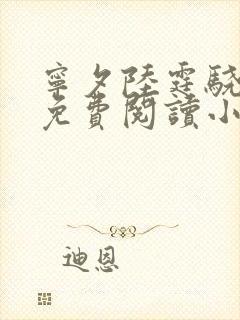 寧夕陸霆驍
免費閱讀小
迪恩